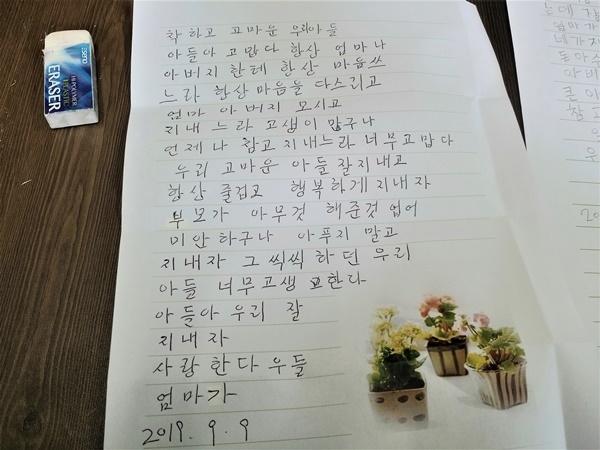 착하고 고마운 우리아들
아들아 고맙다 항상 엄마나
아버지 한테 항상 마음쓰
느라 항상마음을 다스리고
엄마 아버지 모시고
지내느라 고생이 많구나
언제나 참고 지내느라 너무고맙다
우리 고마운 아들잘지내고
항상 줄겁고 행복하게지내자
부모가 아무것 해준것 없어
미안하구나 아푸지 말고
지내자 그씩씩하던 우리
아들 너무고생 한다
아들아 우리 잘
지내자
사랑한다 우들
엄마가
2019. 9. 9
HI-POLYMER
ERASER